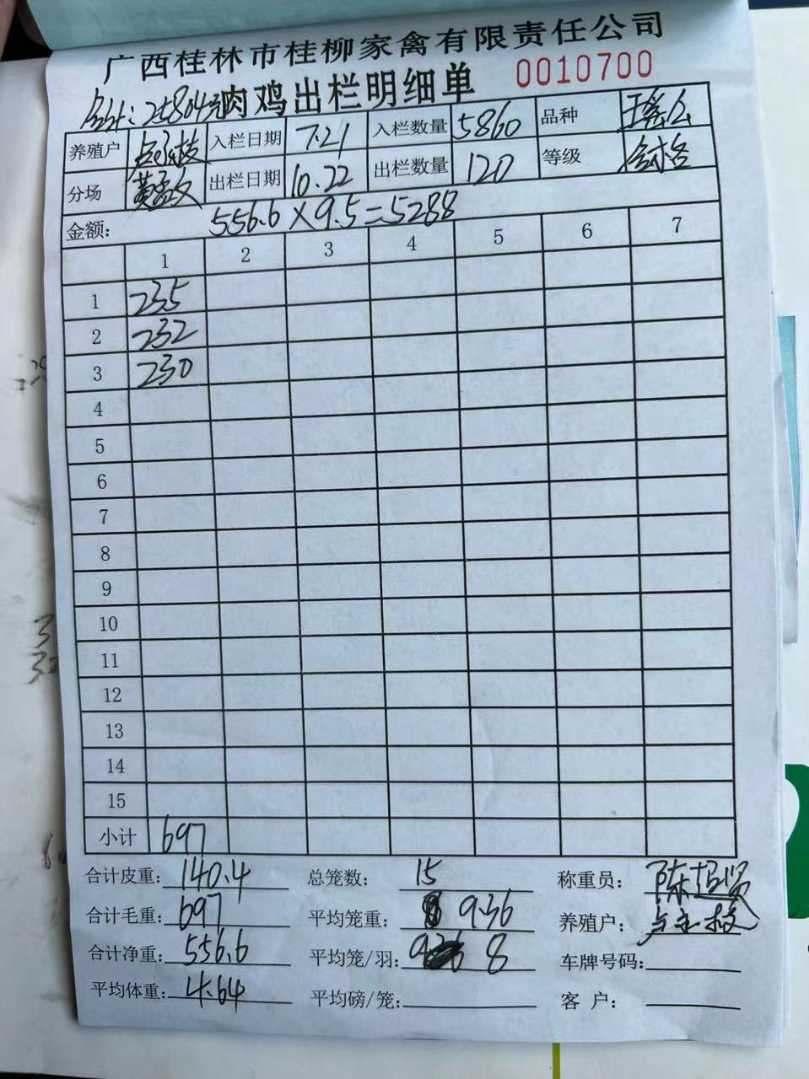 广西桂林市桂柳家禽有限责任公司
合计:25804元 肉鸡出栏明细单 0010700
养殖户 入栏日期 7.21 入栏数量 5860 品种
分场 出栏日期 10.22 出栏数量 120 等级 合格
金额: 556.6×9.5=5288
1 2 3 4 5 6 7
1 235
2 232
3 230
4
5
6
7
8
9
10
11
12
13
14
15
小计 697
合计皮重: 140.4 总笼数: 15 称重员:
合计毛重: 697 平均笼重: 9.36 养殖户:
合计净重: 556.6 平均笼/羽: 8 车牌号码:
平均体重: 4.64 平均磅/笼: 客 户: